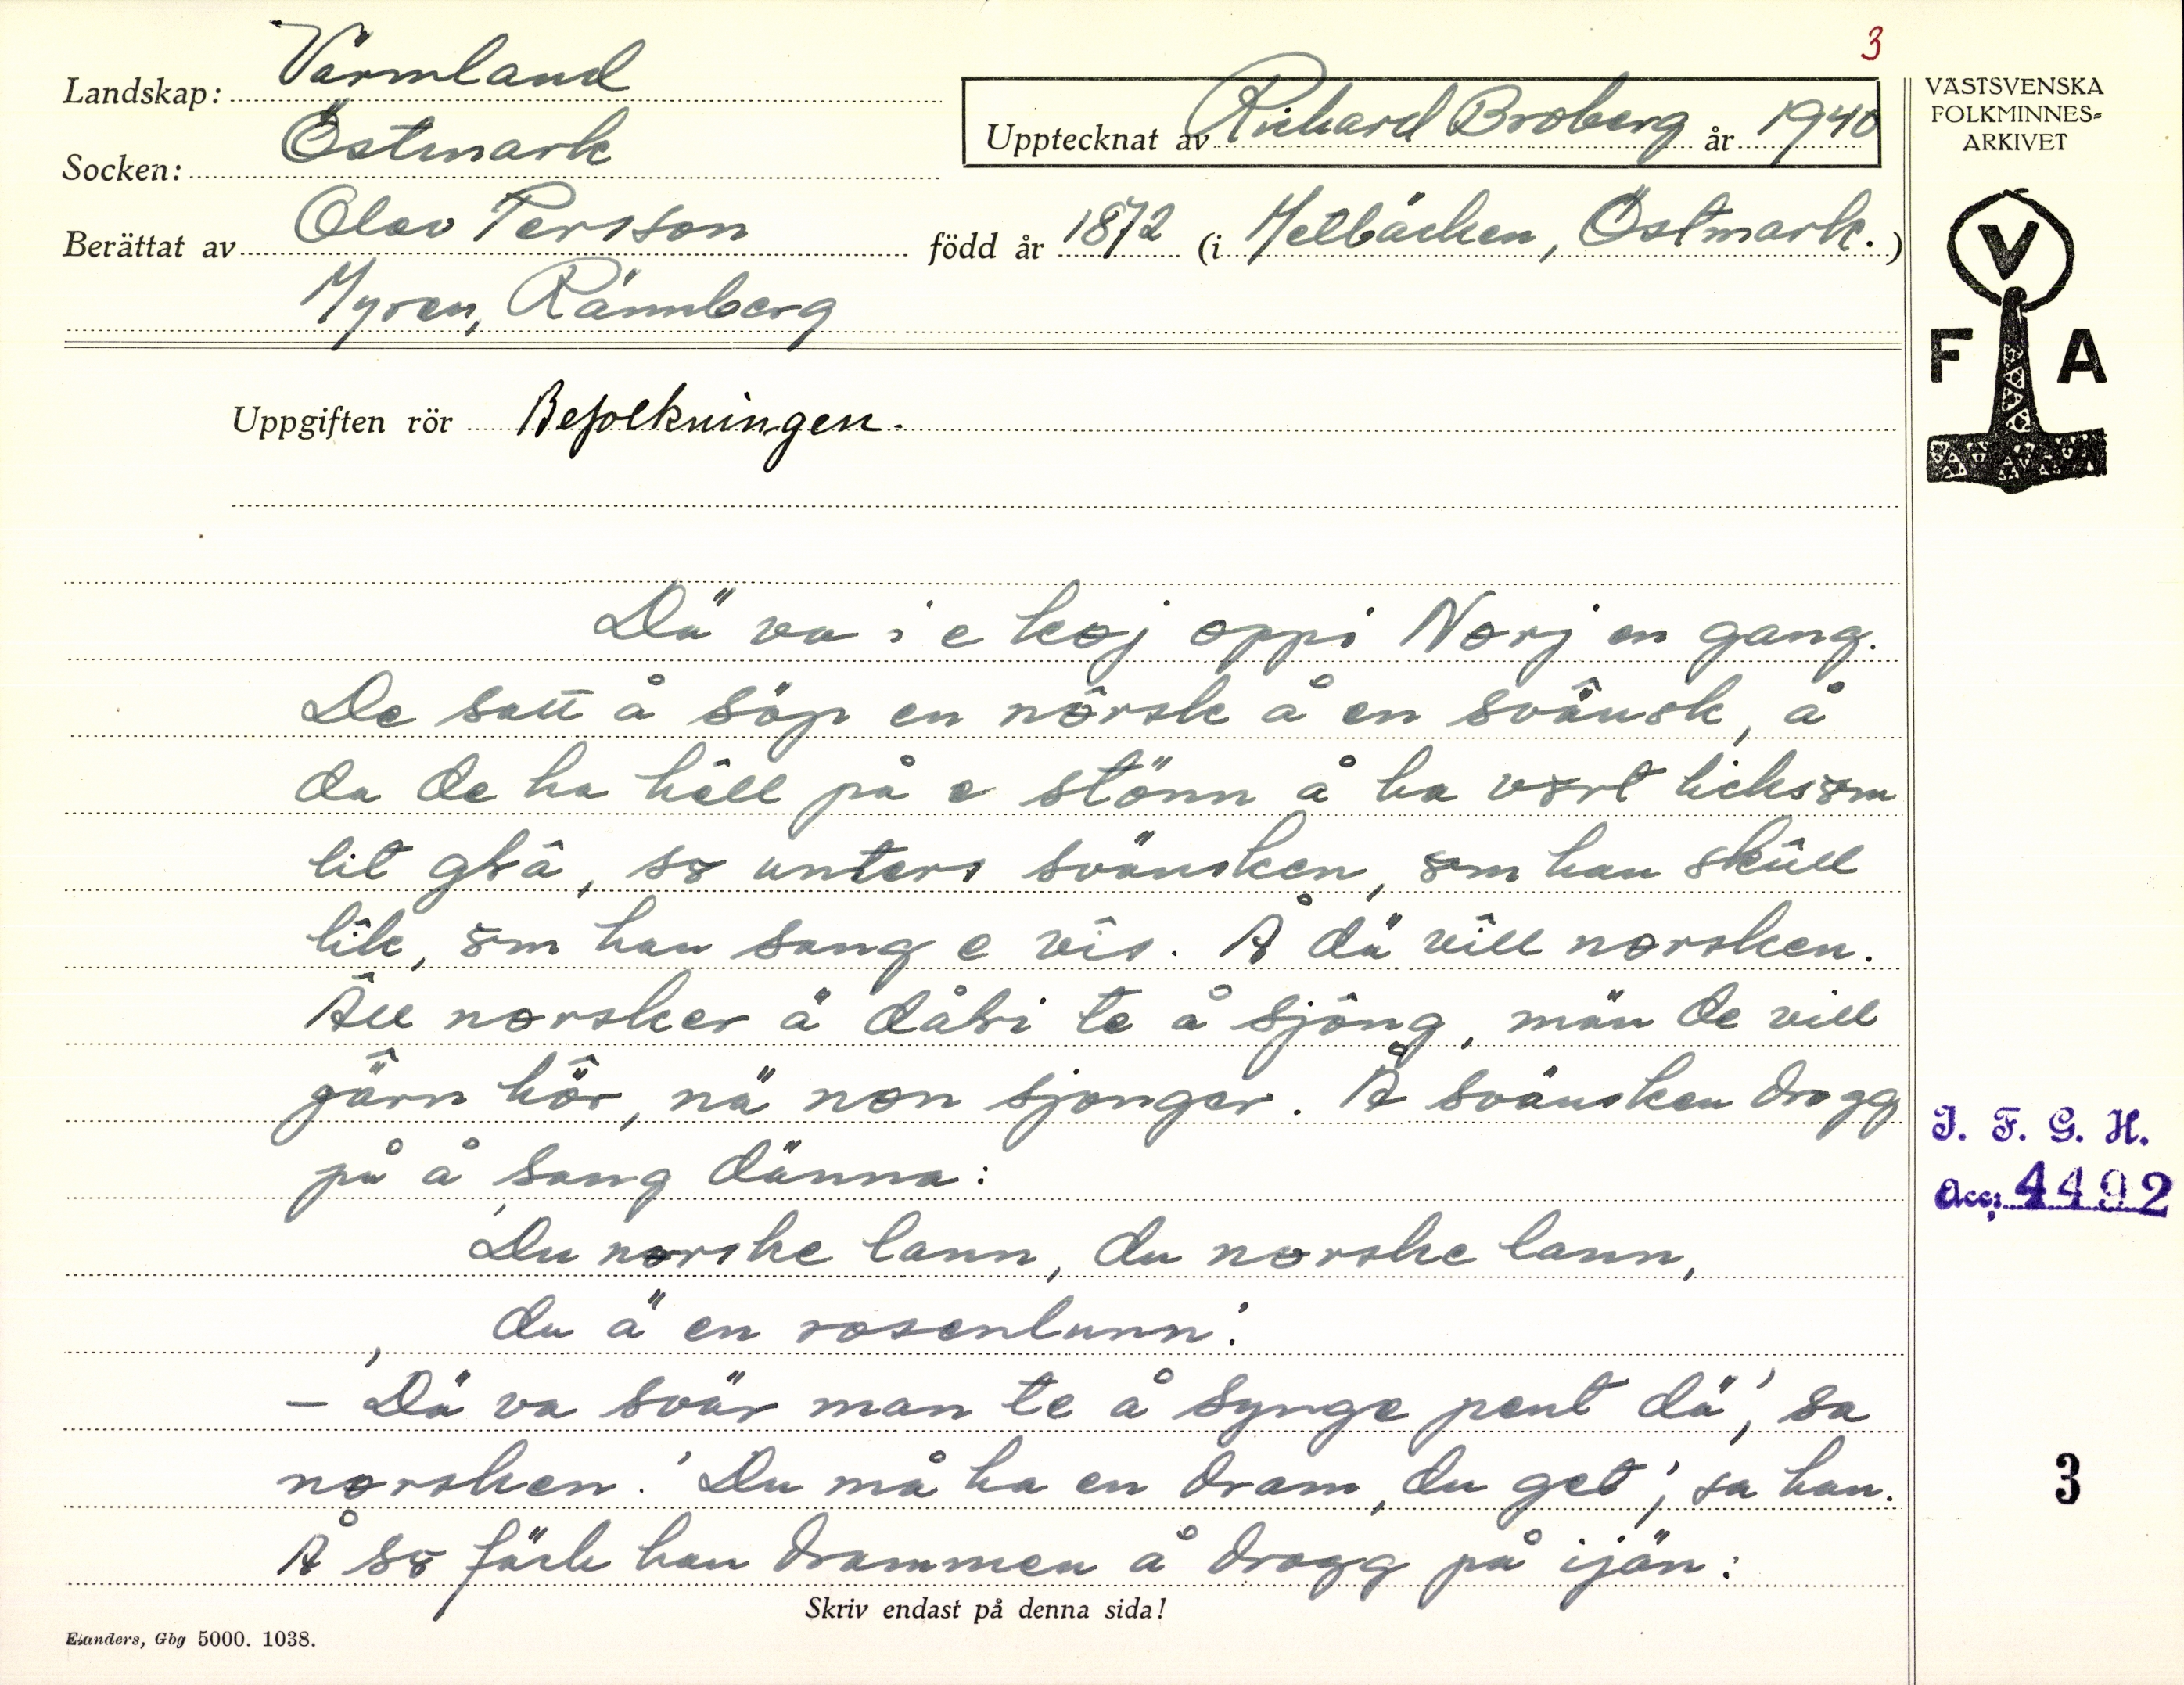 3
Landskap: Värmland
Socken: Östmark
Upptecknat av Richard Broberg år 1940
Berättat av Olav Persson född år 1872 (i Metbäcken, Östmark.)
Myren, Rännberg
VÄSTSVENSKA
FOLKMINNES=
ARKIVET
V
F A
Uppgiften rör Befolkningen.
Dä va i e koj oppi Norj en gang.
De satt å söp en nôrsk å en svä̂nsk, å
da de ha hêll på e stönn å ha vørt licksøm
lit gḷâ, sø unters svänsken, øm han skûll
lik, øm han sang e vîs. Å dä vîll norsken.
Âll norsker ä dåḷi te å sjông, män de vill
gä̂rn hö̂r, nä non sjonger. Å svänsken drogg
på å sang dänna:
'Du norske lann, du norske lann,
du ä en rosenlunn.'
– 'Dä va svär man te å synge pent dä', sa
norsken. 'Du må ha en dram, du get', sa han.
Å sø fäck han drammen å drogg på ijän:
I. F. G. H.
Acc: 4492
3
Skriv endast på denna sida!
Elanders, Gbg 5000. 1038.